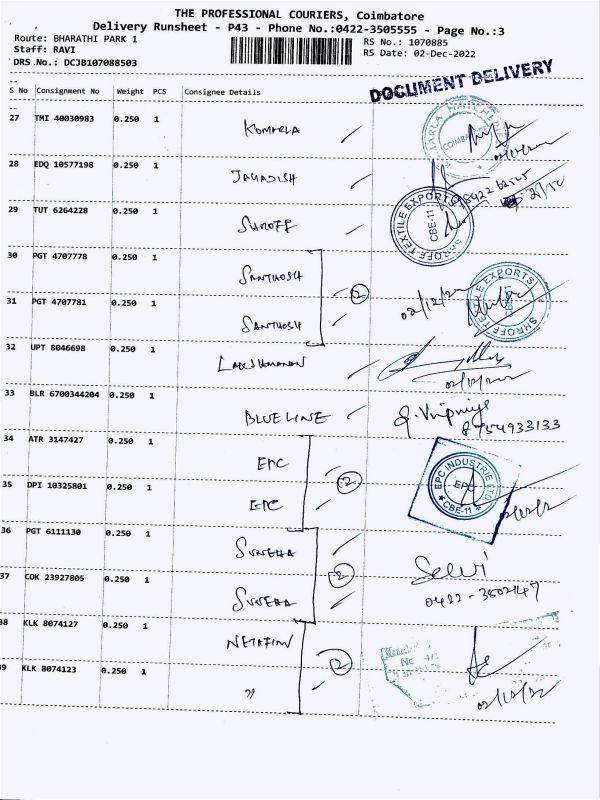 THE PROFESSIONAL COURIERS, Coimbatore
Delivery Runsheet - P43 - Phone No.:0422-3505555 - Page No.:3
Route: BHARATHI PARK 1
RS No.: 1070885
Staff: RAVI
RS Date: 02-Dec-2022
DRS No.: DCJB107088503
DOCUMENT DELIVERY
S No Consignment No Weight PCS Consignee Details
27 TMI 40030983 0.250 1 KOMARLA
COIMBATORE
28 EDQ 10577198 0.250 1 JAGADISH
29 TUT 6264228 0.250 1 SHROFF
SHROFF TEXTILE EXPORTS
CBE-11
30 PGT 4707778 0.250 1 SANTHOSH
2
02/12/22
SHROFF TEXTILE EXPORTS
CBE-11
31 PGT 4707781 0.250 1 SANTHOSH
32 UPT 8046698 0.250 1 LAKSHMANAN
33 BLR 6700344204 0.250 1 BLUE LINE
8754933133
34 ATR 3147427 0.250 1 EPC
2
EPC INDUSTRIE LTD
EPC
CBE-11
35 DPI 10325801 0.250 1 EPC
36 PGT 6111130 0.250 1 SUNEHA
2
Selvi
37 COK 23927805 0.250 1 SUNEHA
0422-3502147
38 KLK 8074127 0.250 1 NETAFIM
2
39 KLK 8074123 0.250 1 "
02/12/22